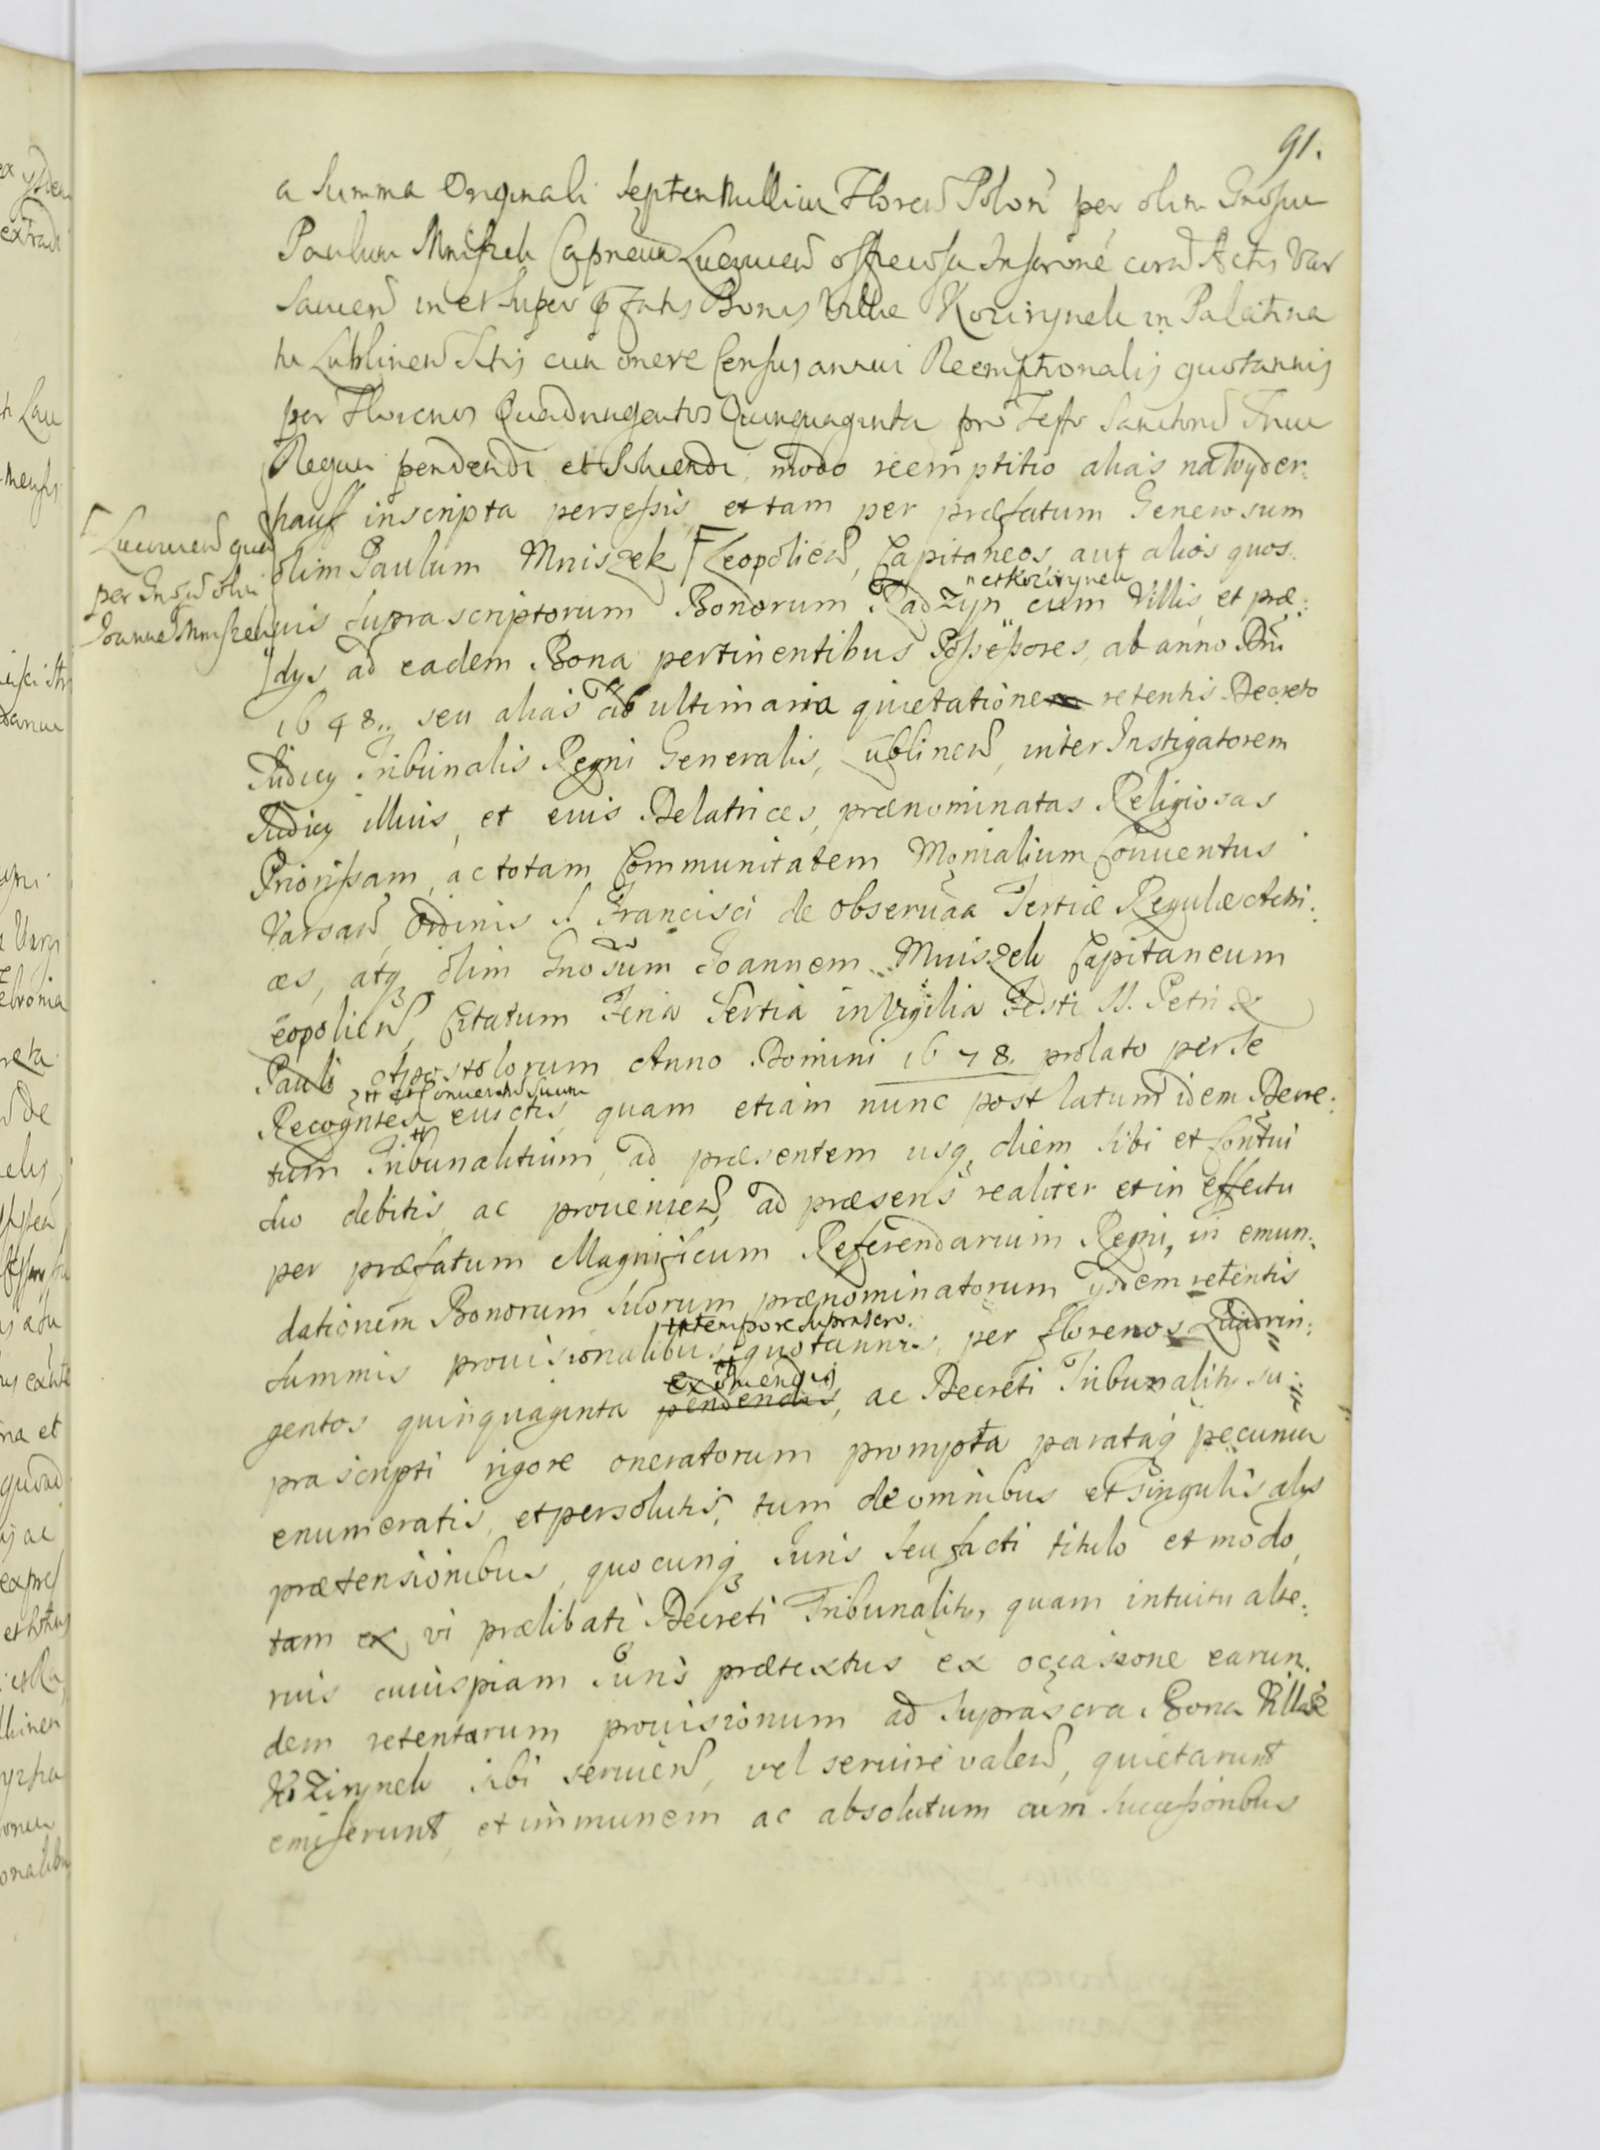 91.
a Summa Originali Septem Millium Floren Polon per olim Gnosum
Paulum Mniszek Capneum Lucouien Inscrone coram Actis Var
sauien in et super Bonis Villae Kozirynek in Palatina
tu Lublinen Sitis cum onere Census annui Reemptionalis quotannis
per Florenos Quadringentos Quinquaginta pro Festo Sanctorum Trium
Regum pendendi et Soluendi, modo reemptitio alias na wyder:
hauf inscripta persessis, et tam per praefatum Generosum
olim Paulum Mniszek Γ Leopolien, Capitaneos, aut alios quos:
Γ Lucouien quam
per Gnosum olim
Joannem Mniszek
" et Kozirynek
uis supra scriptorum Bonorum Radzyn cum Villis et prae:
dys ad eadem Bona pertinentibus Possessores, ab anno Dni
1648. seu alias ab ultimaria quietatione retentis Decreto
Judicy Tribunalis Regni Generalis, Lublinen, inter Instigatorem
Judicy illius, et eius Delatrices, praenominatas Religiosas
Priorissam, ac totam Communitatem Monialium Conuentus
Varsauien, Ordinis S. Francisci de obseruaa Tertiae Regulae Actri:
ces, atq olim Gnosum Joannem Mniszek Capitaneum
Leopolien, Citatum Feria Tertia in Vigilia Festi SS. Petri &
Pauli Apostolorum Anno Domini 1678. prolato per se
# et Conuentum suum
Recognten euictis, quam etiam nunc post latum idem Decre:
tum Tribunalitium, ad praesentem usq diem sibi et Contui
suo debitis ac prouenien, ad praesens realiter et in effectu
per praefatum Magnificum Referendarium Regni, in emun:
dationem Bonorum suorum praenominatorum ysdem retentis
in tempore suprascro.
summis prouisionalibus, quotannis, per florenos Quadrin:
exsoluendis
gentos quinquaginta pendendis, ac Decreti Tribunalitij su:
prascripti rigore oneratorum prompta parataq pecunia
enumeratis, et persolutis, tum de omnibus et singulis alys
praetensionibus, quocunq Juris seu facti titulo et modo,
tam ex vi praelibati Decreti Tribunalitij, quam intuitu alte:
rius cuiuspiam Juris praetextus ex occasione earun:
dem retentarum prouisionum ad suprascra Bona Villae
Kozirynek sibi seruien, vel seruire valen, quietarunt
emiserunt, et immunem ac absolutum cum successoribus